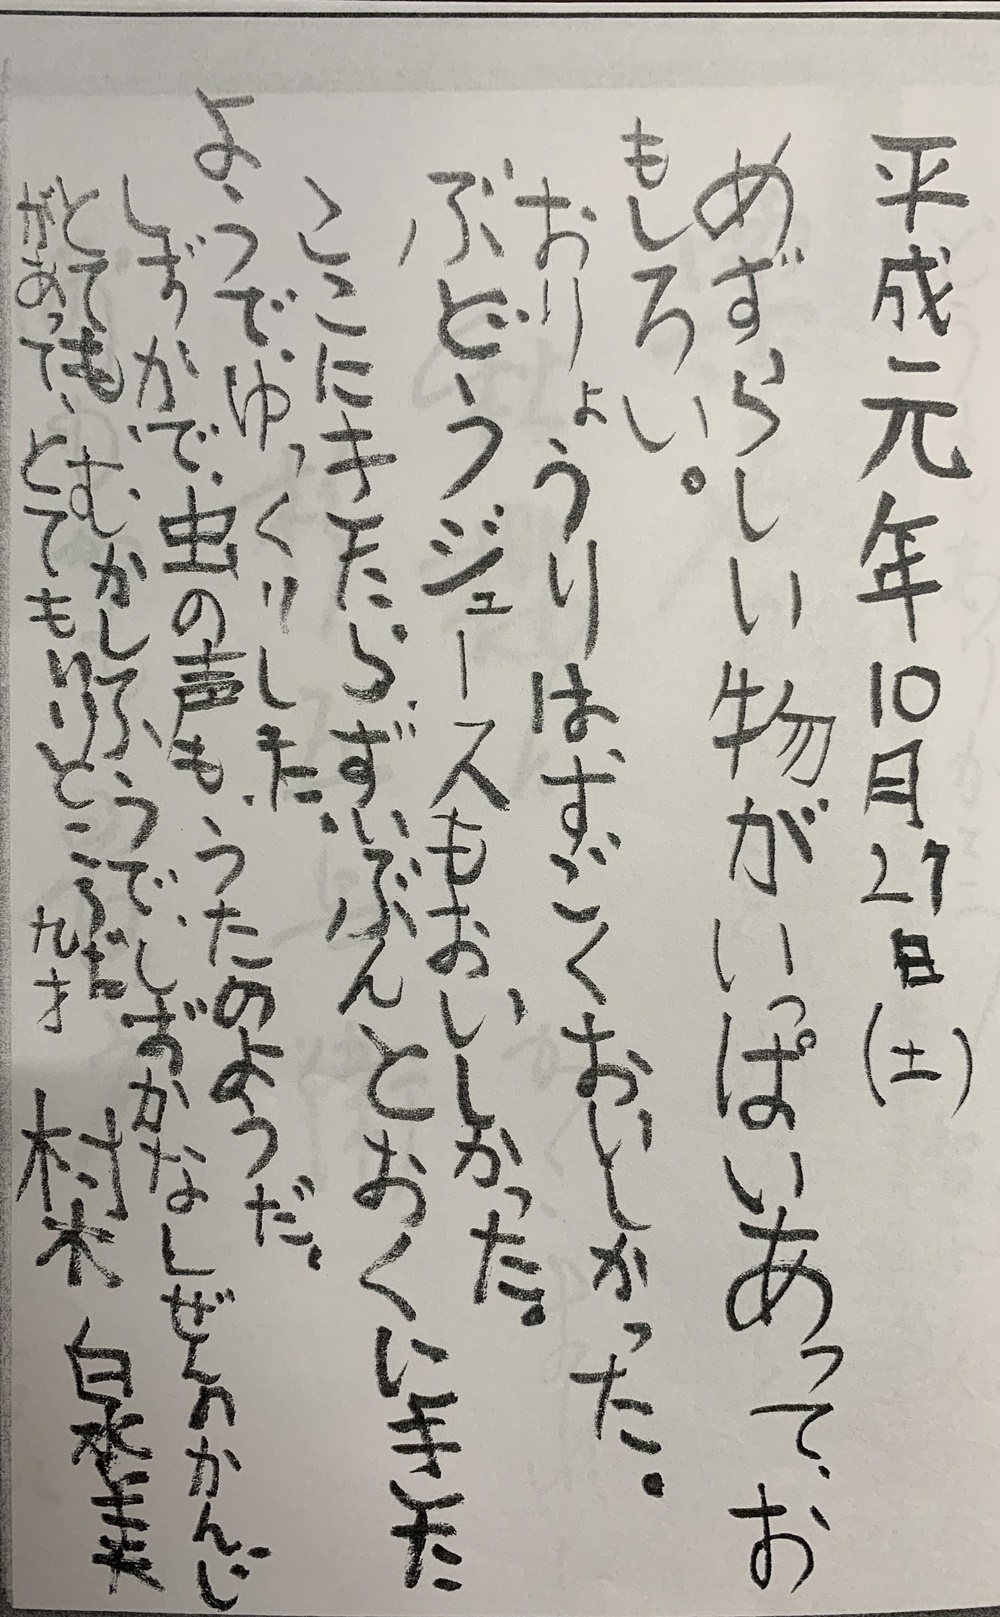 平成元年10月27日(土)
めずらしい物がいっぱいあって、お
もしろい。
おりょうりは、すごくおいしかった。
ぶどうジュースもおいしかった。
ここにきたら、ずいぶんとおくにきた
ようで、ゆっくりした。
しずかで、虫の声も、うたのようだ。
とても、むかしふうで、しずかなしぜんのかんじ
があって、とてもいいところだ 九才
村木